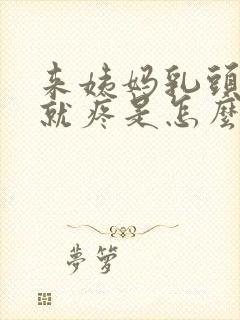 来姨妈乳頭
就疼是怎麼
夢箩